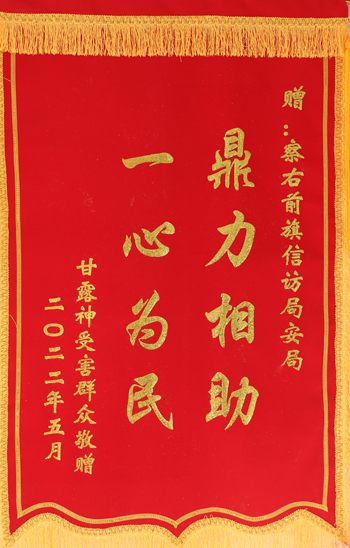 赠：察右前旗信访局安局
鼎力相助
一心为民
甘露神受害群众敬赠
二〇二二年五月